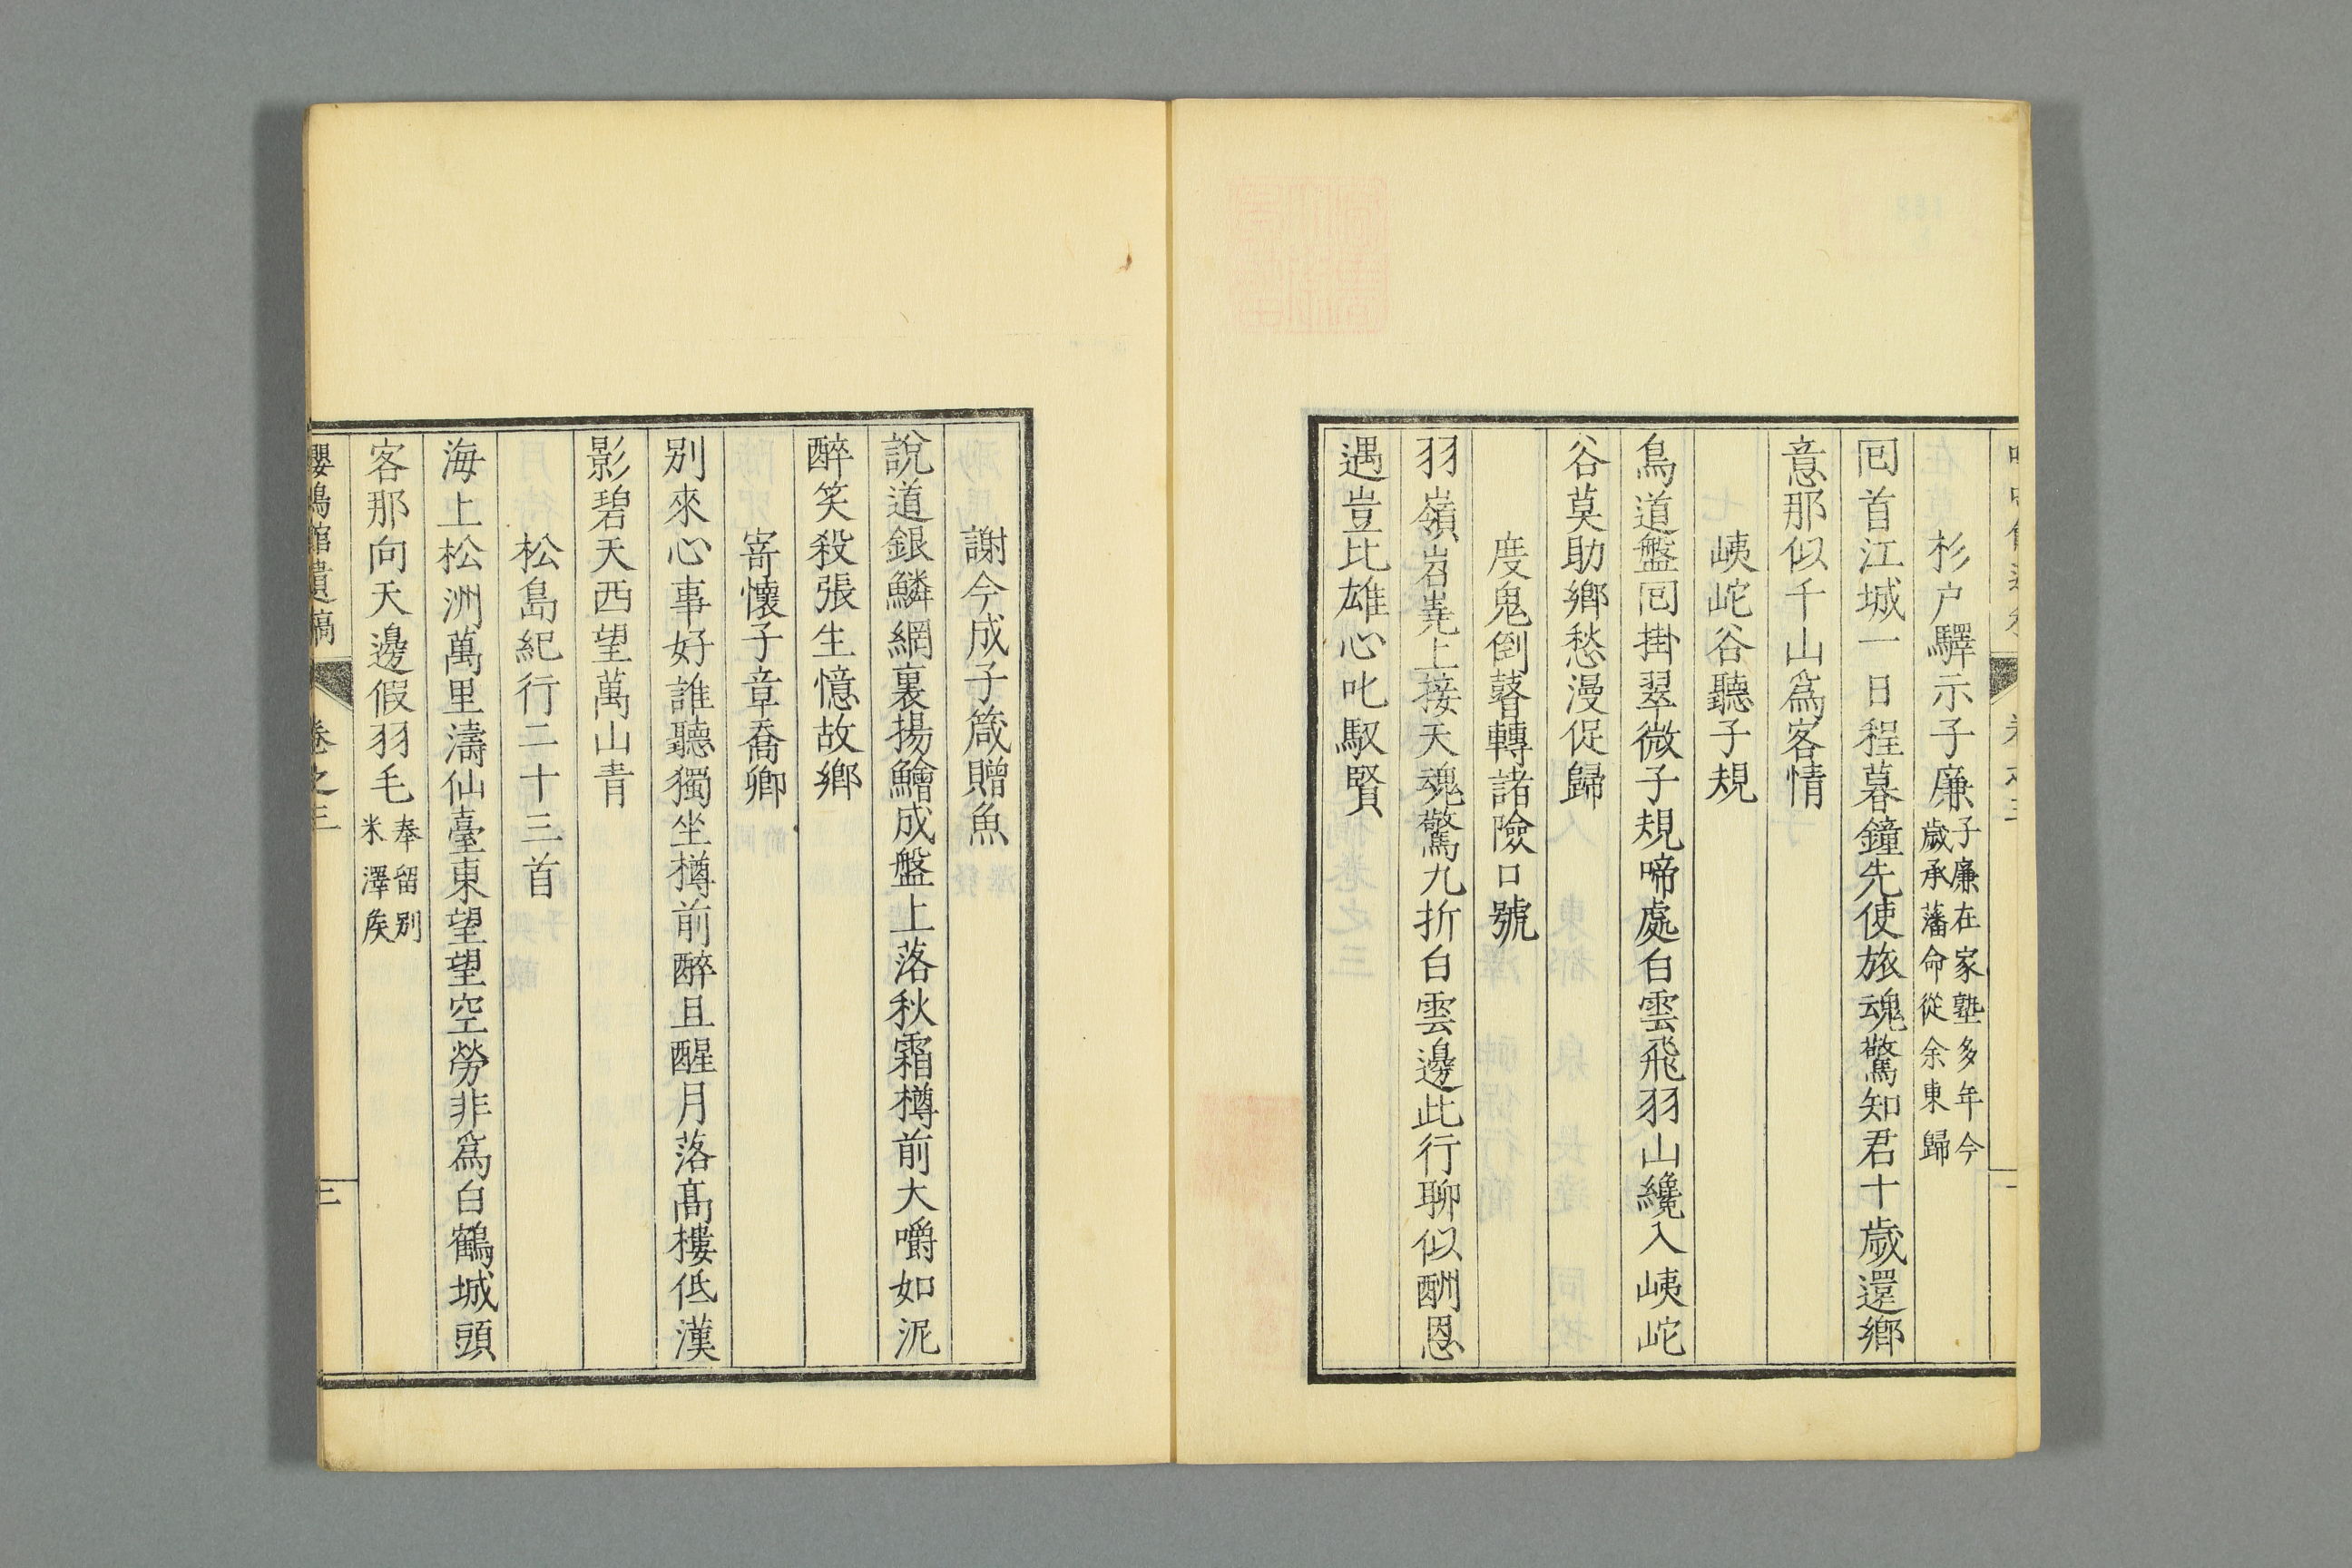 杉戶驛示子廉子廉在家塾多年今
歲承藩命從余東歸
囘首江城一日程暮鐘先使旅魂驚知君十歲還鄉
意那似千山爲客情
峓岮谷聽子規
鳥道盤囘掛翠微子規啼處白雲飛羽山纔入峓岮
谷莫助鄉愁漫促歸
度鬼倒鼛轉諸險口號
羽嶺岧嶤上接天魂驚九折白雲邊此行聊似酬恩
遇豈比雄心叱馭賢
謝今成子箴贈魚
說道銀鱗網裏揚鱠成盤上落秋霜樽前大嚼如泥
醉笑殺張生憶故鄉
寄懷子章喬卿
別來心事好誰聽獨坐樽前醉且醒月落髙樓低漢
影碧天西望萬山青
松島紀行二十三首
海上松洲萬里濤仙臺東望望空勞非爲白鶴城頭
客那向天邊假羽毛奉留別
米澤矦
嚶鳴館遺稿 卷之三 三